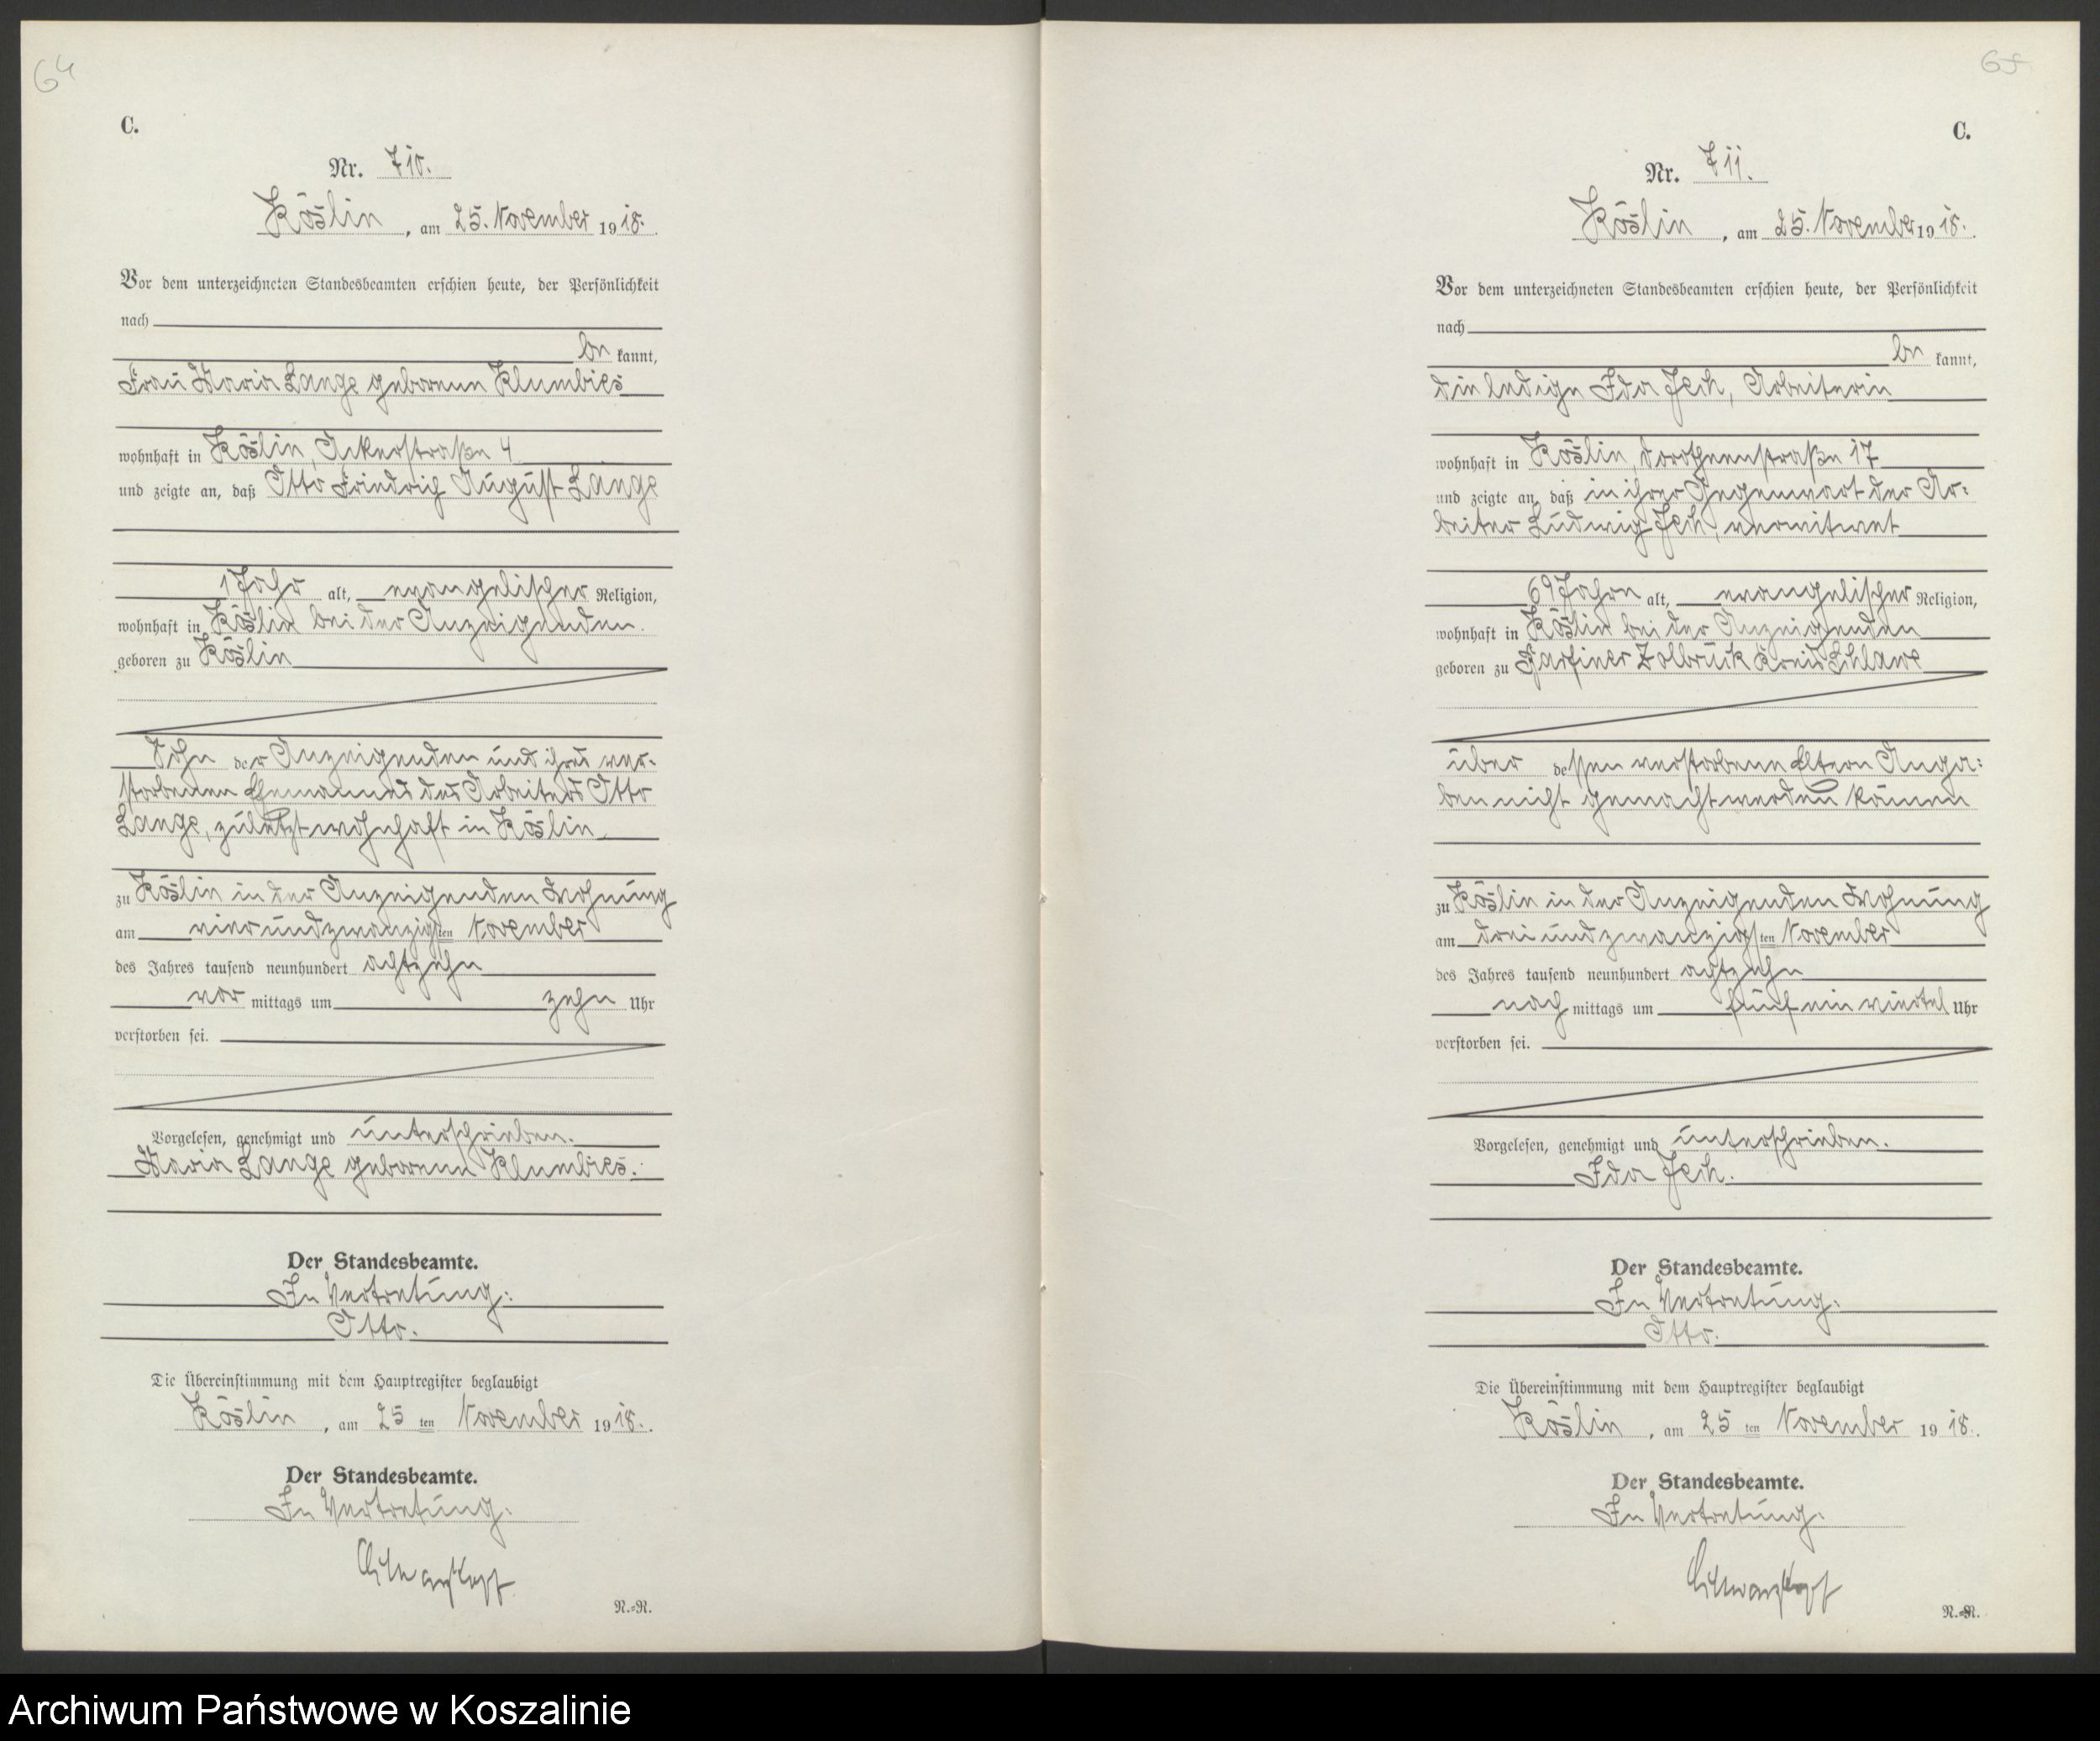 64
C.
Nr. 710.
Köslin, am 25. November 1918.
Vor dem unterzeichneten Standesbeamten erschien heute, der Persönlichkeit
nach
be kannt,
Frau Maria Lange geborene Klumbies
wohnhaft in Köslin, Ackerstraße 4
und zeigte an, daß Otto Friedrich August Lange
1 Jahr alt, evangelischer Religion,
wohnhaft in Köslin bei der Anzeigenden.
geboren zu Köslin
Sohn der Anzeigenden und ihres ver-
storbenen Ehemannes des Arbeiters Otto
Lange, zuletzt wohnhaft in Köslin
zu Köslin in der Anzeigenden Wohnung
am vierundzwanzigsten November
des Jahres tausend neunhundert achtzehn
vor mittags um zehn Uhr
verstorben sei.
Vorgelesen, genehmigt und unterschrieben.
Maria Lange geborene Klumbies.
Der Standesbeamte.
In Vertretung:
Otto.
Die Übereinstimmung mit dem Hauptregister beglaubigt
Köslin, am 25 ten November 1918.
Der Standesbeamte.
In Vertretung:
Schwarzkopf
R.=R.
65
C.
Nr. 711.
Köslin, am 25. November 1918.
Vor dem unterzeichneten Standesbeamten erschien heute, der Persönlichkeit
nach
be kannt,
die ledige Ida Jech, Arbeiterin
wohnhaft in Köslin, Dorotheenstraße 17
und zeigte an, daß in ihrer Gegenwart der Ar=
beiter Ludwig Jech, verwitwet
69 Jahre alt, evangelischer Religion,
wohnhaft in Köslin bei der Anzeigenden
geboren zu Zolbrück Kreis Schlawe
über dessen verstorbene Eltern Anga=
ben nicht gemacht werden können
zu Köslin in der Anzeigenden Wohnung
am dreiundzwanzigsten November
des Jahres tausend neunhundert achtzehn
nach mittags um fünf ein viertel Uhr
verstorben sei.
Vorgelesen, genehmigt und unterschrieben.
Ida Jech.
Der Standesbeamte.
In Vertretung:
Otto.
Die Übereinstimmung mit dem Hauptregister beglaubigt
Köslin, am 25 ten November 1918.
Der Standesbeamte.
In Vertretung:
Schwarzkopf
R.=R.
Archiwum Państwowe w Koszalinie